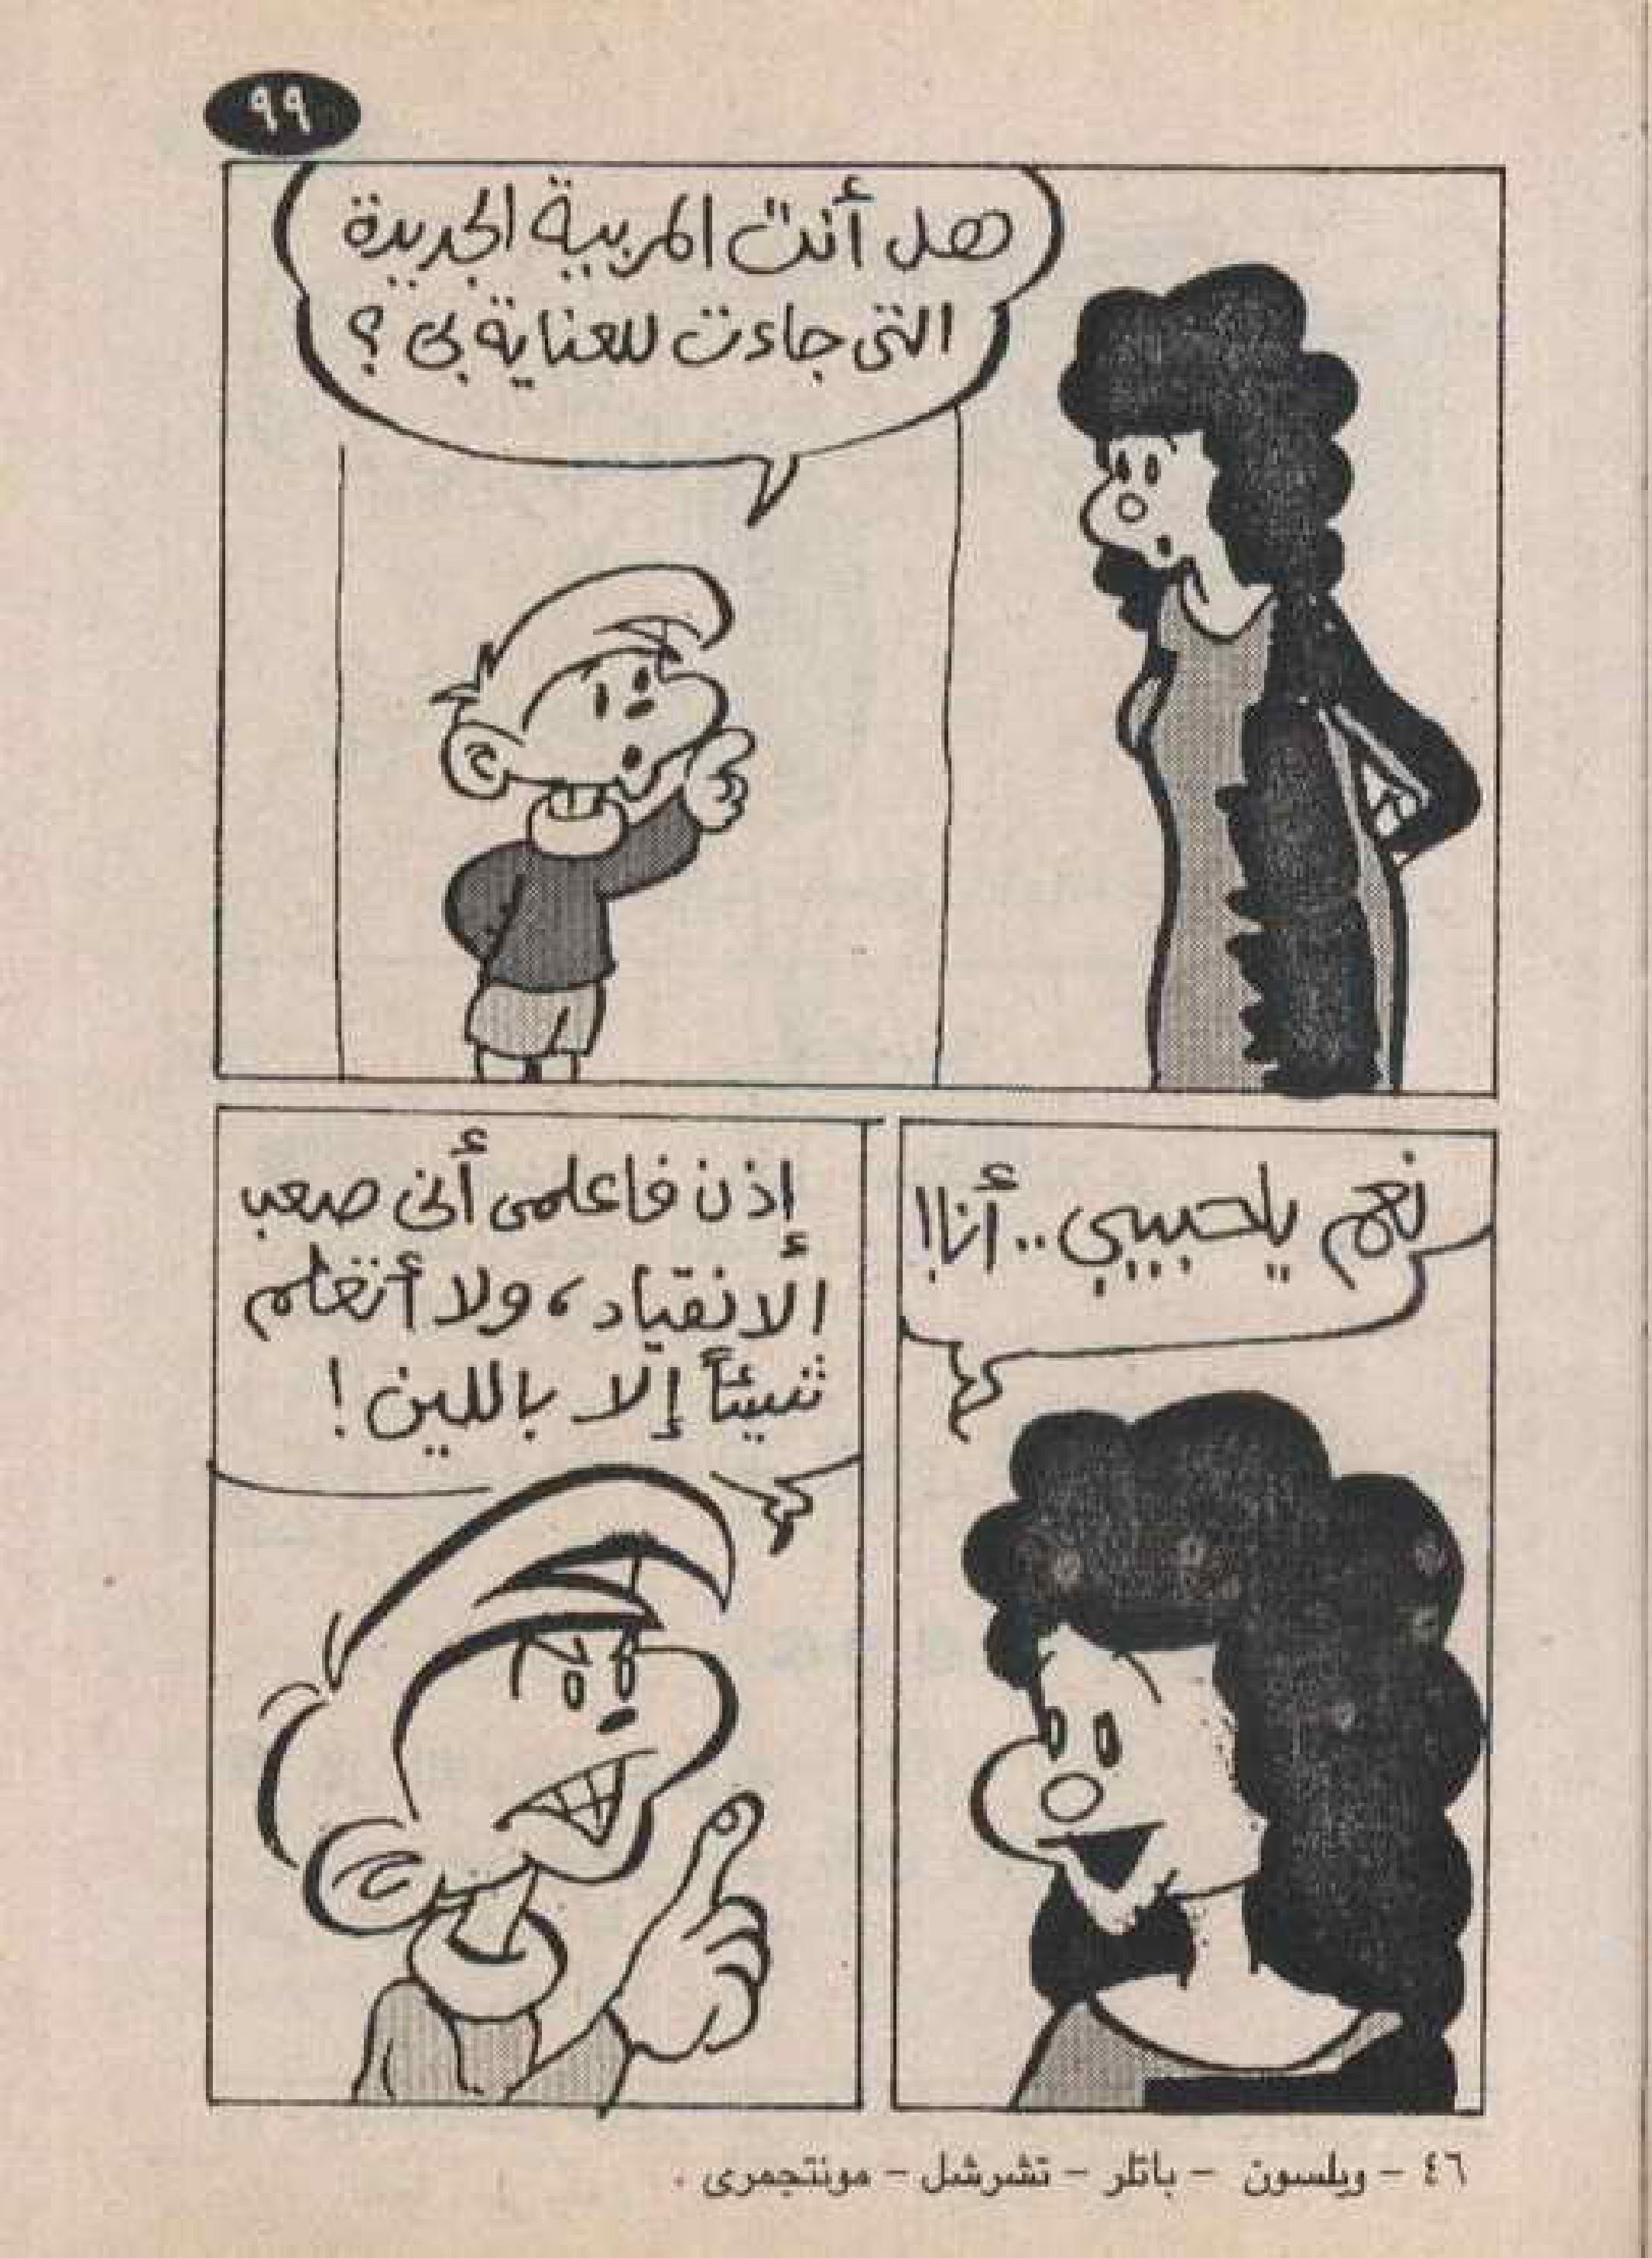 ٩٩
هل أنت المربية الجديدة
التى جاءت للعناية بى ؟
نعم ياحبيبي .. أنا!
إذن فاعلمى أنى صعب
ألانقياد، ولا أتعلم
شيئاً إلا باللين !
٤٦ - ويلسون - باتلر - تشرشل - مونتجمرى .